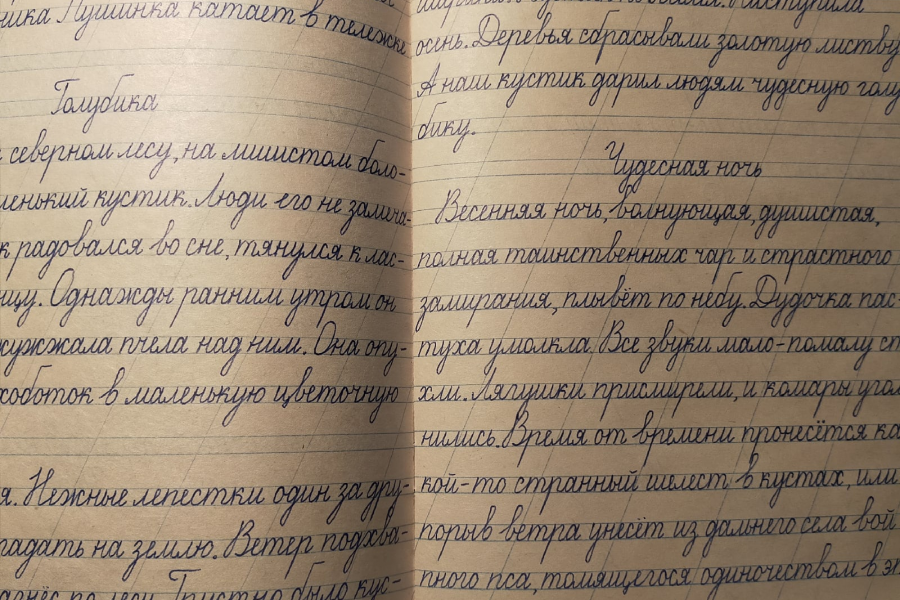 Пушинка катает в тележке
Голубика
северном лесу, на мшистом боло-
ленький кустик. Люди его не замеча-
к радовался во сне, тянулся к лас-
нцу. Однажды ранним утром он
жужжала пчела над ним. Она опу-
хоботок в маленькую цветочную
я. Нежные лепестки один за дру-
падать на землю. Ветер подхва-
Грустно было кус-
осень. Деревья сбрасывали золотую листву
А наш кустик дарил людям чудесную голу
бику.
Чудесная ночь
Весенняя ночь, волнующая, душистая,
полная таинственных чар и страстного
замирания, плывёт по небу. Дудочка пас-
туха умолкла. Все звуки мало-помалу ст
хли. Лягушки присмирели, и комары угом
нились. Время от времени пронесётся ка
кой-то странный шелест в кустах, или
порыв ветра унесёт из дальнего села вой
пного пса, томящегося одиночеством в эт